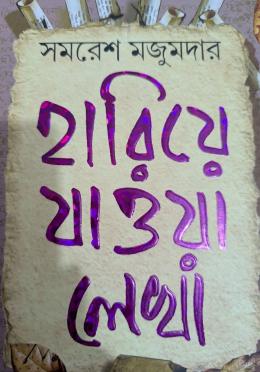 সমরেশ মজুমদার
হারিয়ে
যাওয়া
লেখা